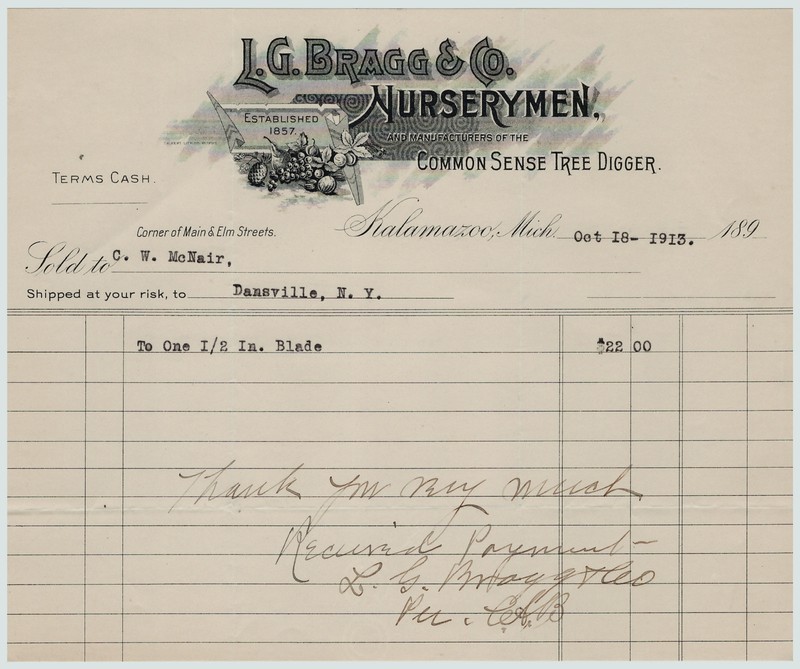 L. G. BRAGG & CO.
NURSERYMEN,
ESTABLISHED
1857.
AND MANUFACTURERS OF THE
COMMON SENSE TREE DIGGER.
TERMS CASH.
Corner of Main & Elm Streets.
Kalamazoo, Mich. Oct 18- 1913. 189
Sold to C. W. McNair,
Shipped at your risk, to Dansville, N. Y.
To One 1/2 In. Blade $22 00
Thank you very much
Received Payment
L. G. Bragg & Co
Per. C.A.B